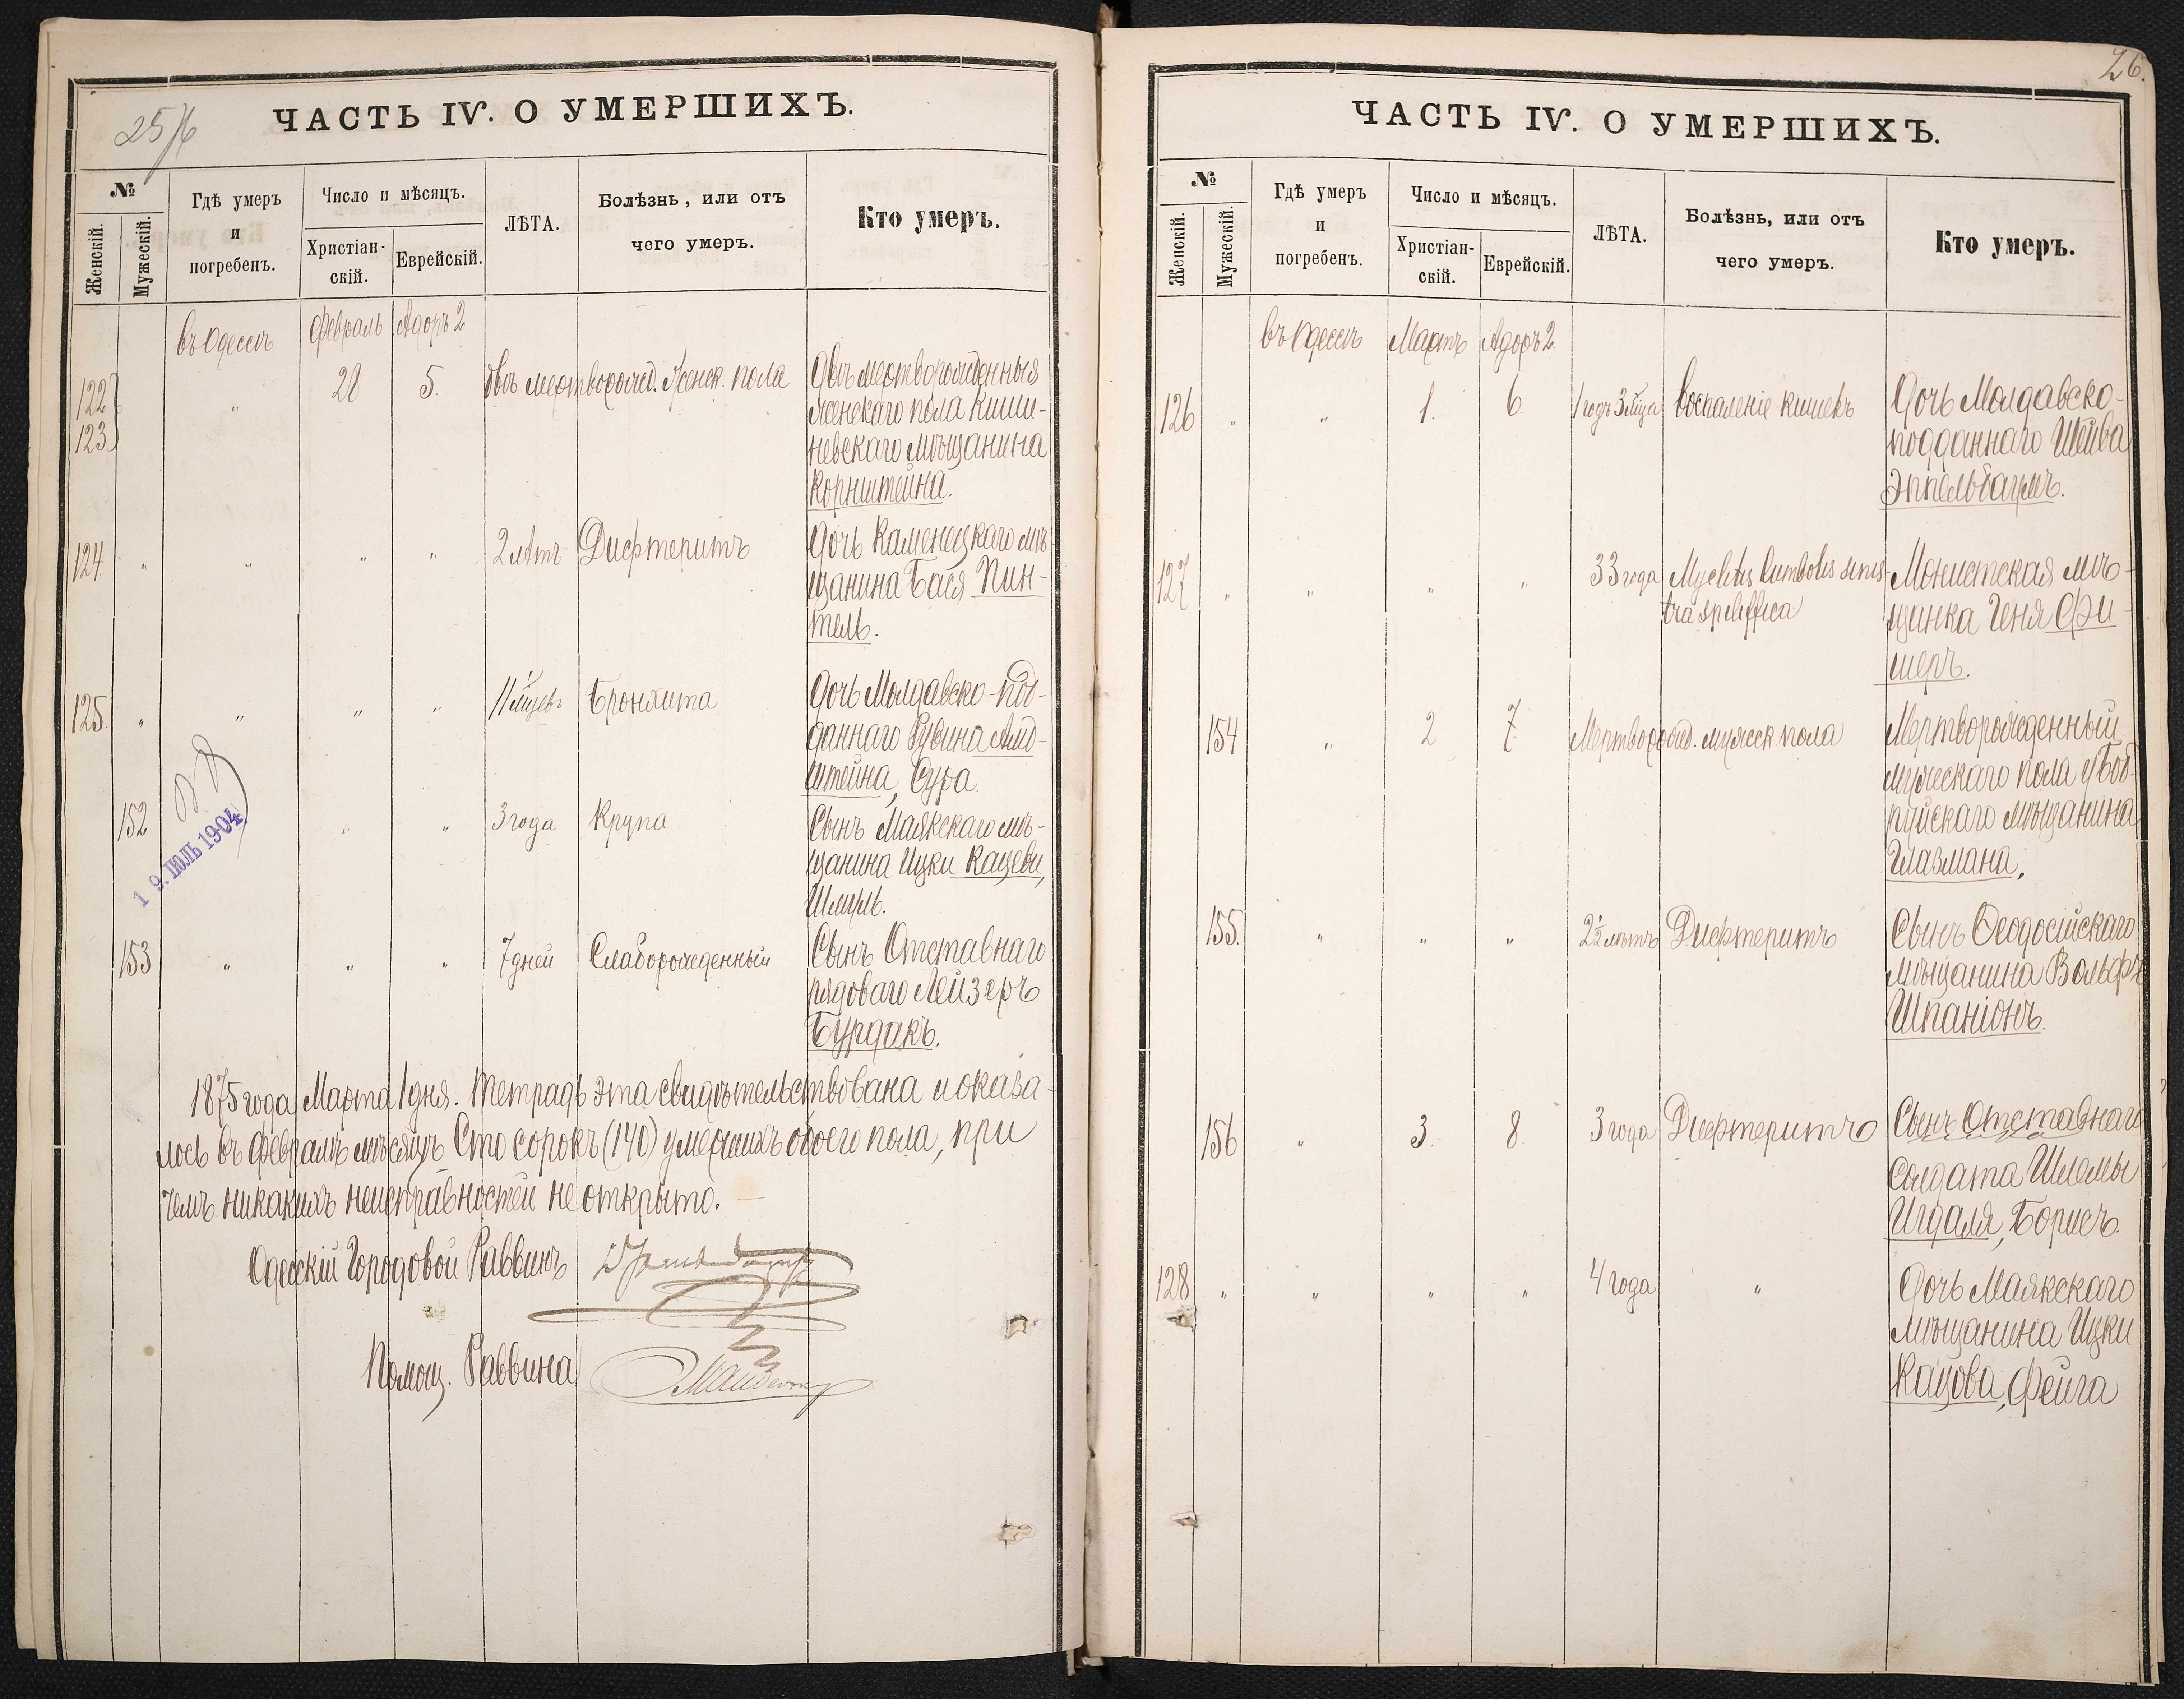 25/6
ЧАСТЬ IV. О УМЕРШИХЪ.
№
Женскій.
Мужескій.
Гдѣ умеръ
и
погребенъ.
Число и мѣсяцъ.
Христіан-
скій.
Еврейскій.
ЛѢТА.
Болѣзнь, или отъ
чего умеръ.
Кто умеръ.
въ Одессѣ Февраль Адоръ 2
122 123 " 28 5. двѣ мертворожд. женск. пола Двѣ мертворожденныя
женскаго пола Киши-
невскаго мѣщанина
Корнштейна.
124 " " " " 2 лѣтъ Дифтеритъ Дочь Каменецкаго мѣ-
щанина Бася Пин-
тель.
125 " " " " 11 мѣцевъ Бронхита Дочь Молдавско-под-
даннаго Рувина
штейна, Сура.
152 " " 3 года Крупа Сынъ Маякскаго мѣ-
щанина Ицки Кацеви,
Шмуль.
153 " " " 7 дней Слаборожденный Сынъ Отставнаго
рядоваго Лейзеръ
Бурдакъ.
19. ІЮЛЬ 1904
1875 года Марта 1 дня. Тетрадь эта свидѣтельствована и оказа-
лось въ Февралѣ мѣсяцѣ Сто сорокъ (140) умершихъ обоего пола, при
чемъ никакихъ неисправностей не открыто.
Одесскій Городовой Раввинъ
Помощ. Раввина
26.
ЧАСТЬ IV. О УМЕРШИХЪ.
№
Женскій.
Мужескій.
Гдѣ умеръ
и
погребенъ.
Число и мѣсяцъ.
Христіан-
скій.
Еврейскій.
ЛѢТА.
Болѣзнь, или отъ
чего умеръ.
Кто умеръ.
въ Одессѣ Мартъ Адоръ 2.
126 " " 1. 6. 1 годъ 3 мѣца воспаленіе кишекъ Дочь Молдавско-
подданнаго Шейва
Эппельбаумъ.
127 " " " " 33 года Myelitis Монистская мѣ-
щанка Геня Фи-
шеръ.
154 " 2 7. Мертворожд. мужеск. пола Мертворожденный
мужескаго пола у Боб-
руйскаго мѣщанина
Глазмана.
155. " " " 2½ лѣтъ Дифтеритъ Сынъ Ѳеодосійскаго
мѣщанина Вольфъ
Шпаніонъ.
156 " 3. 8. 3 года Дифтеритъ Сынъ Отставнаго
солдата Шлемы
Игдаля, Борисъ.
128 " " " " 4 года " Дочь Маякскаго
мѣщанина Ицки
Кацова, Фейга